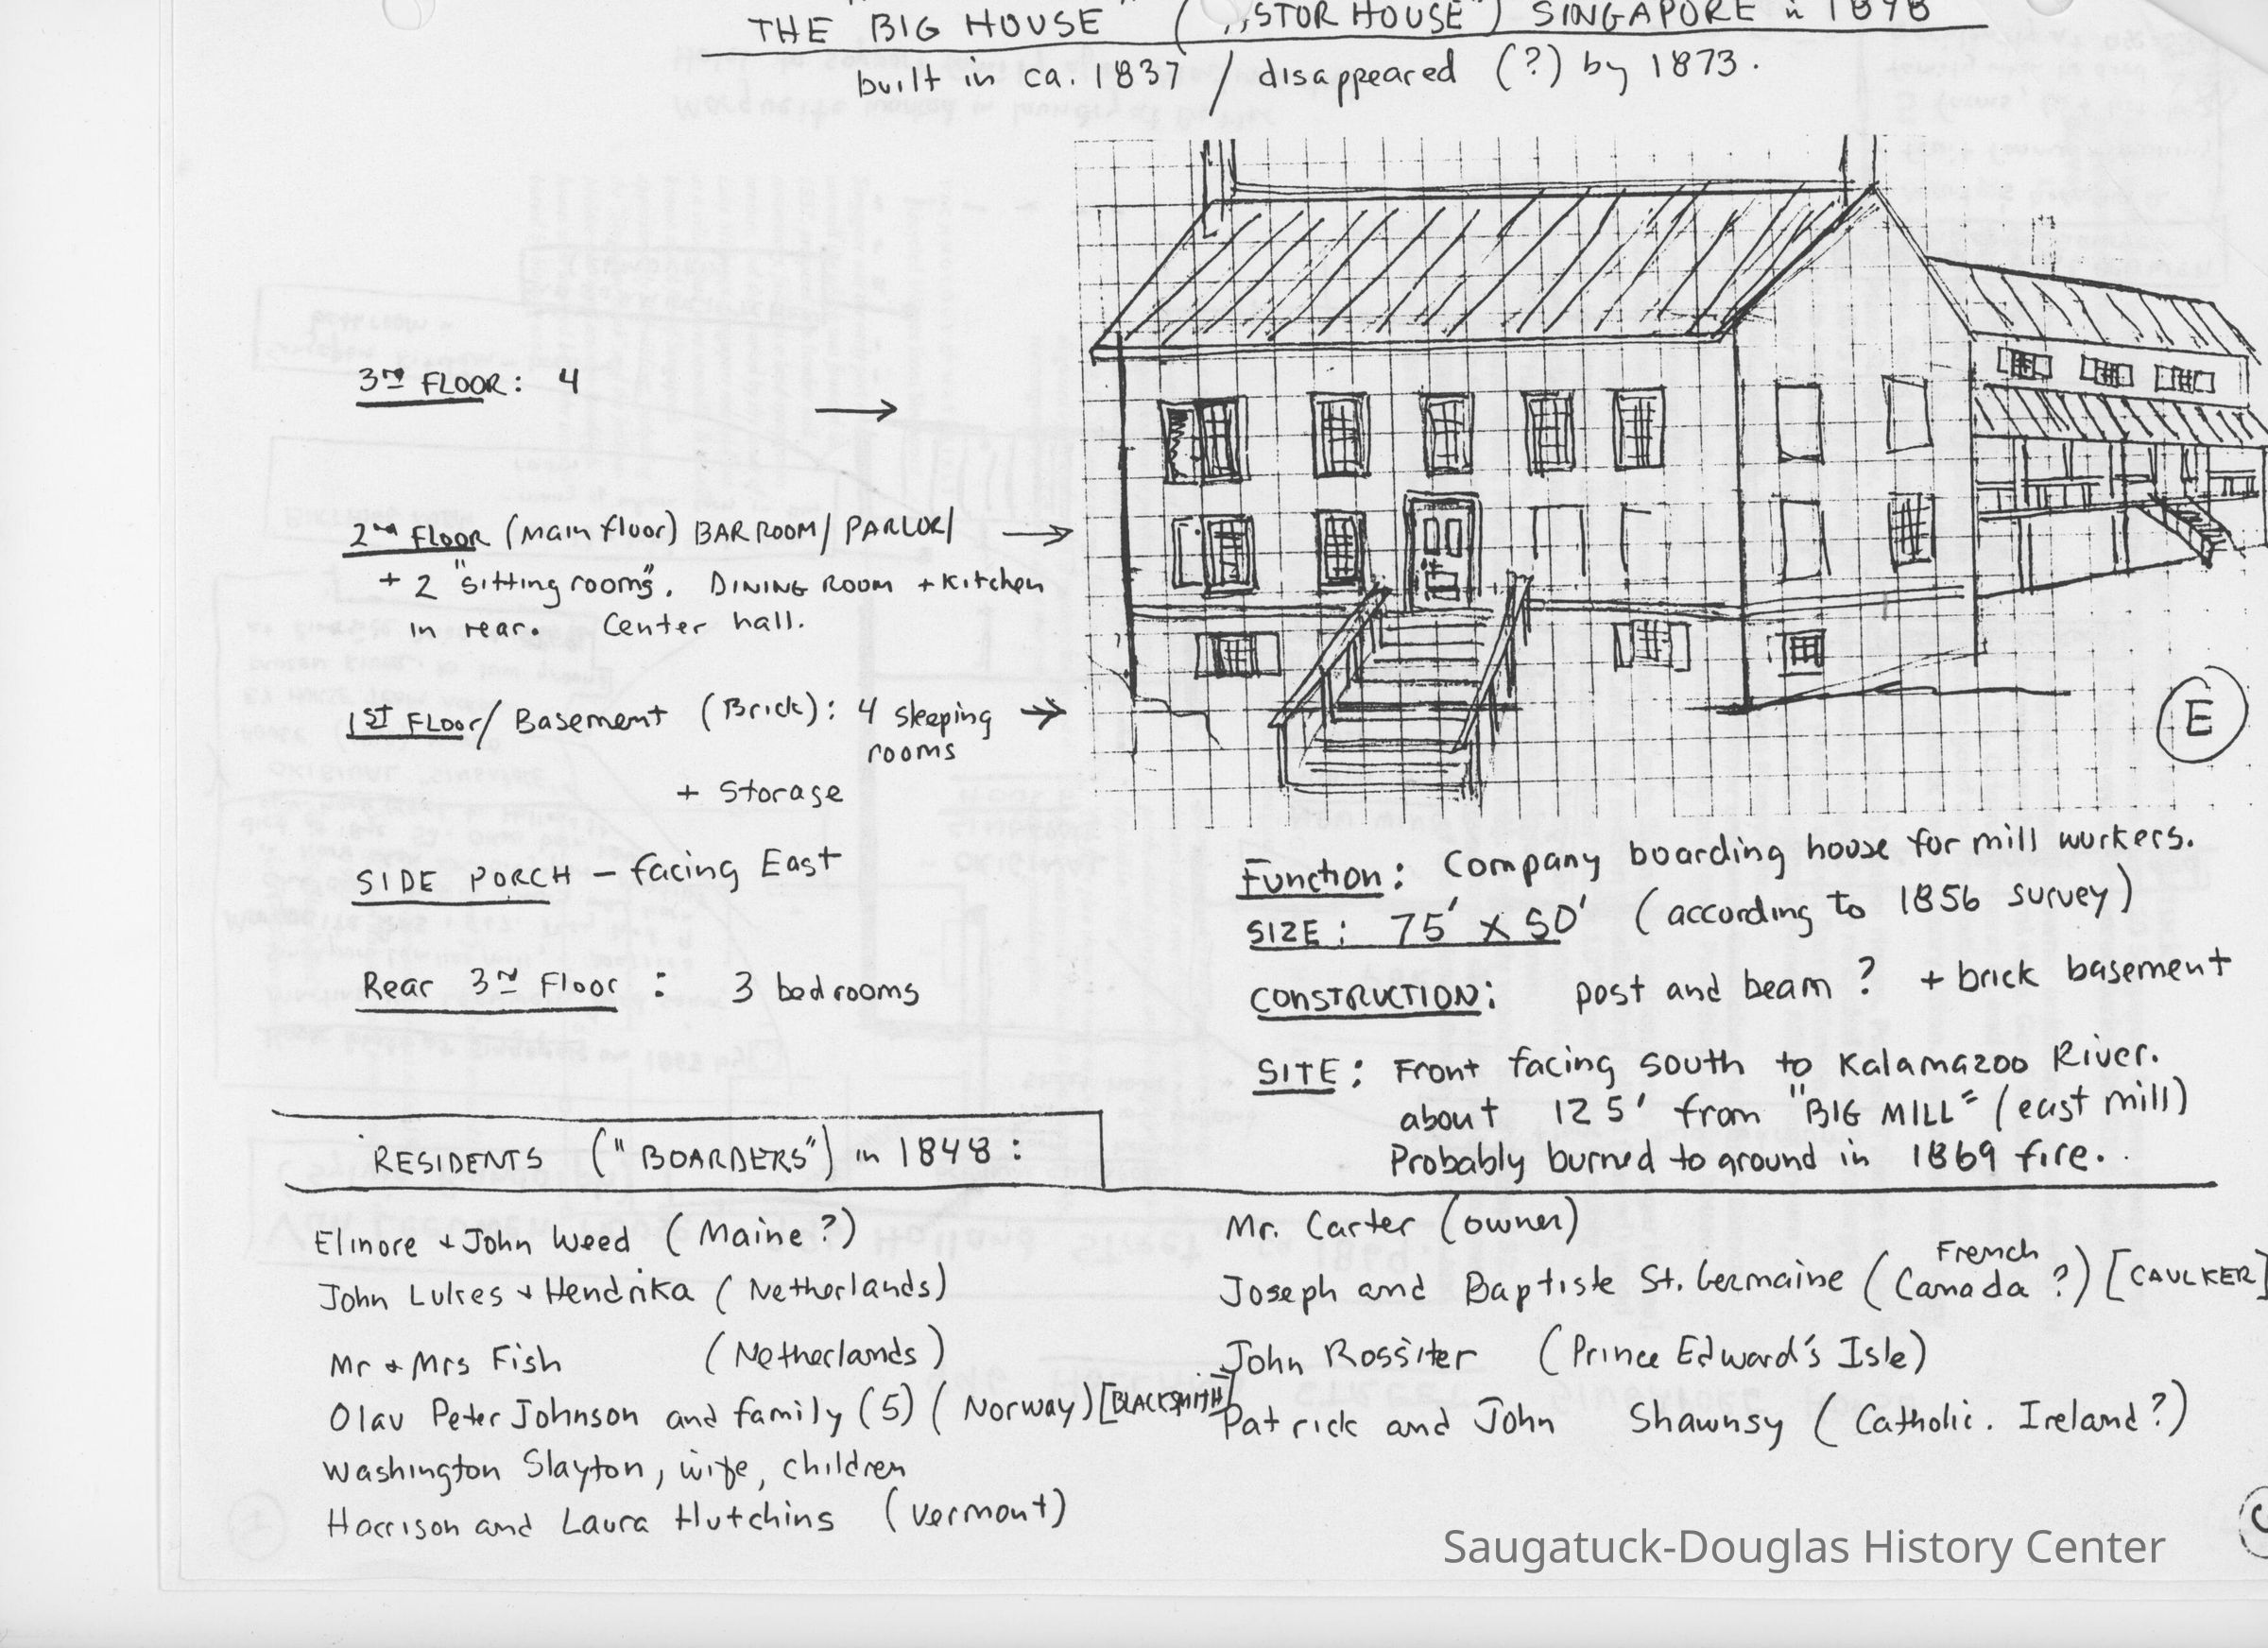 THE "BIG HOUSE" („STOR HOUSE") SINGAPORE in 1848
built in ca. 1837 / disappeared (?) by 1873.
3rd FLOOR: 4
2nd FLOOR (main floor) BAR ROOM/ PARLOR/
+ 2 "sitting rooms". DINING ROOM + Kitchen
in rear. Center hall.
1ST FLOOR/ Basement (Brick): 4 sleeping
rooms
+ Storage
SIDE PORCH – facing East
Rear 3rd Floor : 3 bedrooms
E
Function: Company boarding house for mill workers.
SIZE: 75' X 50' (according to 1856 survey)
CONSTRUCTION: post and beam ? + brick basement
SITE: Front facing south to Kalamazoo River.
about 125' from "BIG MILL" (east mill)
Probably burned to ground in 1869 fire.
RESIDENTS ("BOARDERS") in 1848:
Elinore + John Weed (Maine?)
John Lukes + Hendrika (Netherlands)
Mr + Mrs Fish (Netherlands)
Olav Peter Johnson and family (5) (Norway) [BLACKSMITH]
Washington Slayton, wife, children
Harrison and Laura Hutchins (Vermont)
Mr. Carter (owner)
Joseph and Baptiste St. Germaine (French Canada ?) [CAULKER]
John Rossiter (Prince Edward's Isle)
Patrick and John Shawnsy (Catholic. Ireland?)
Saugatuck-Douglas History Center